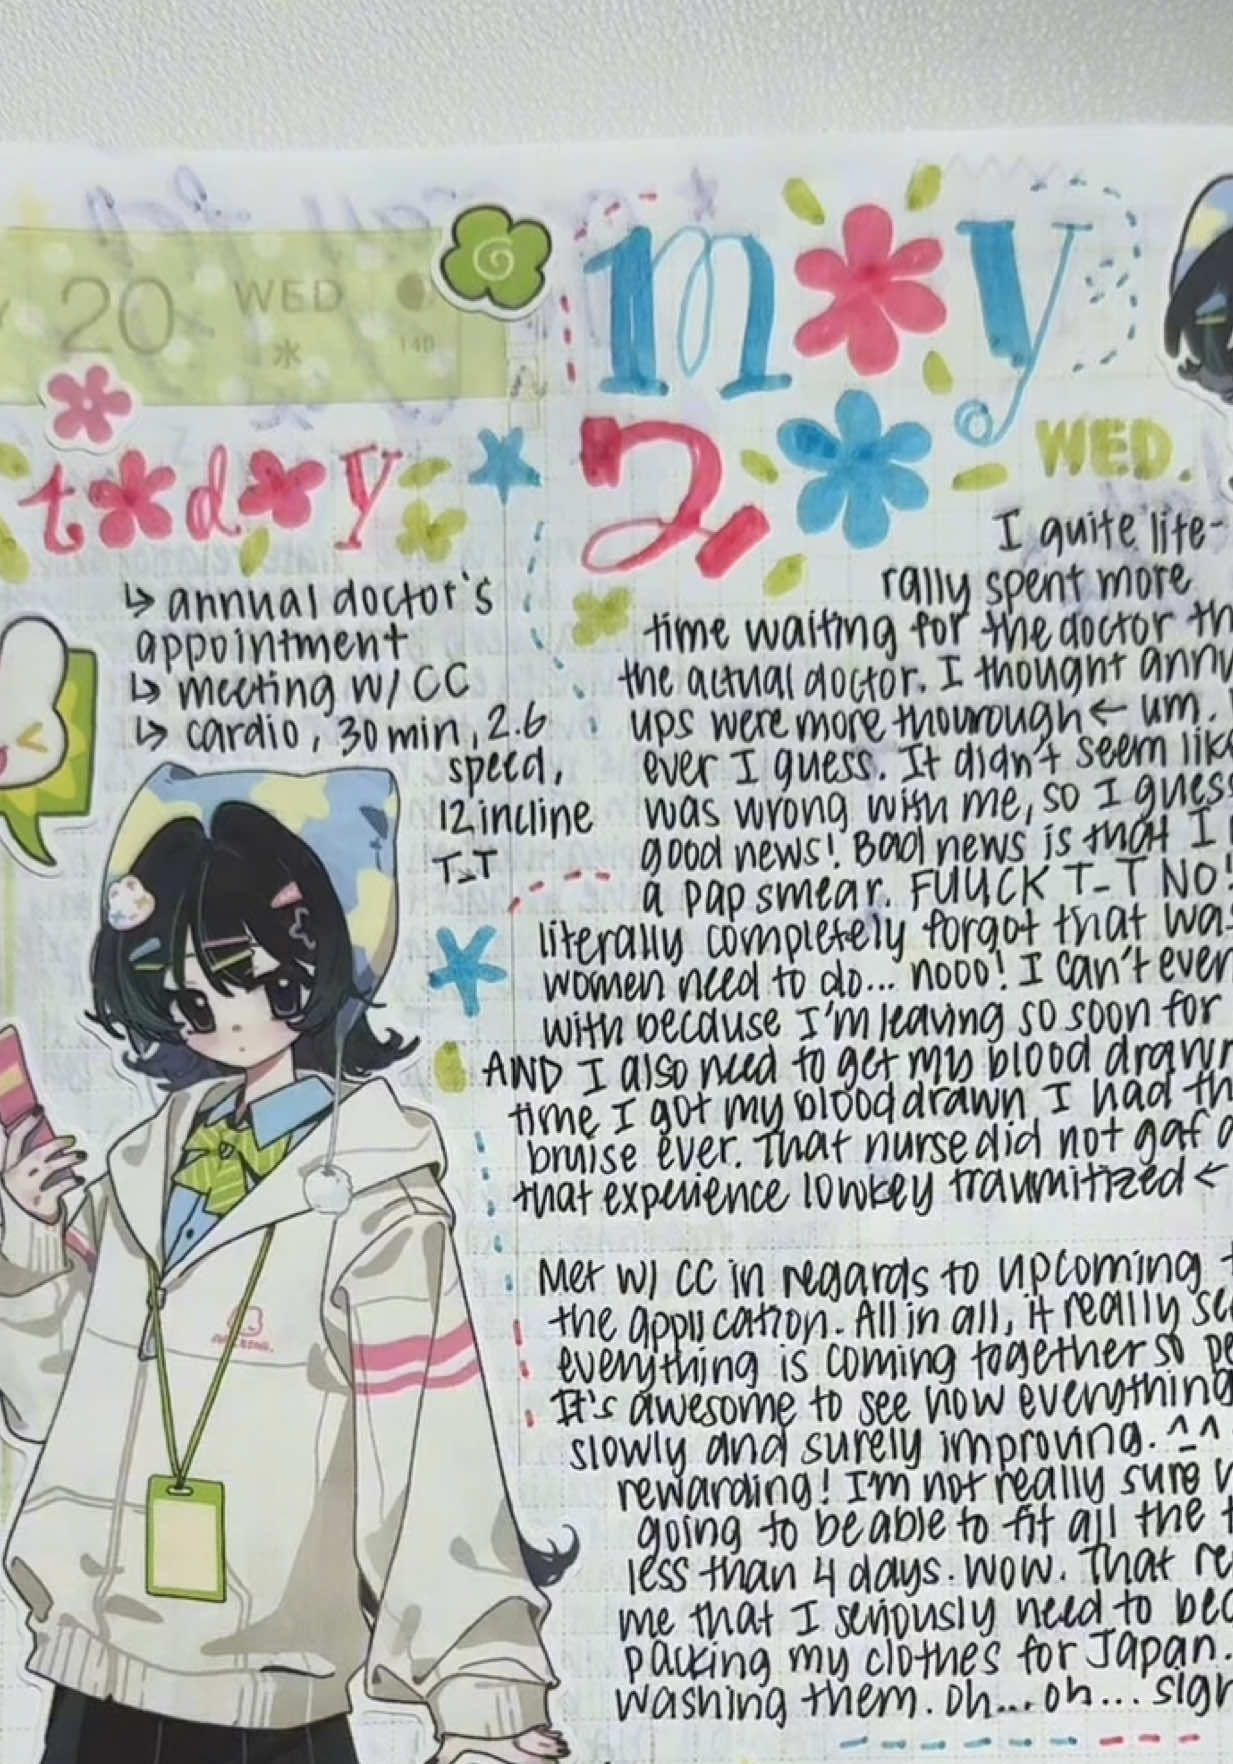 20 WED
水
140
today
↳ annual doctor's
appointment
↳ meeting w/ CC
↳ cardio, 30 min, 2.6
speed,
12 incline
T_T
may
20
WED.
I quite lite-
rally spent more
time waiting for the doctor th
the actual doctor. I thought annu
ups were more thourough ← um.
ever I guess. It didn't seem like
was wrong with me, so I guess
good news! Bad news is that I
a pap smear. FUUUCK T-T NO!
literally completely forgot that was
women need to do... nooo! I can't even
with because I'm leaving so soon for
AND I also need to get my blood drawn
time I got my blood drawn, I had th
bruise ever. That nurse did not gaf a
that experience lowkey traumitized ←
Met w/ CC in regards to upcoming t
the application. All in all, it really se
everything is coming together so pe
It's awesome to see how everything
slowly and surely improving. ^_^
rewarding! I'm not really sure
going to be able to fit all the t
less than 4 days. Wow. That re
me that I seriously need to beg
packing my clothes for Japan.
washing them. Oh... oh... sigh